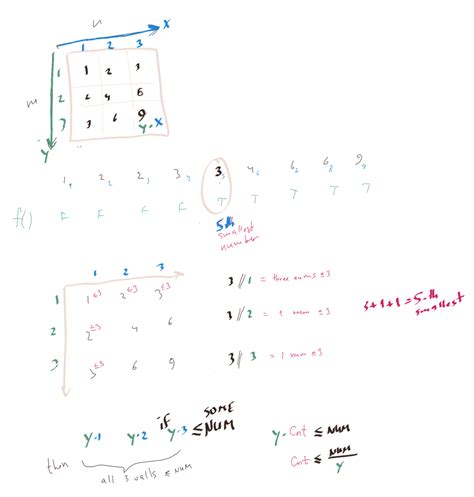 n
x
1 2 3
m
1 1 2 3
2 2 4 6
3 3 6 9
y y·x
1, 2, 2, 3, 3, 4, 6, 6, 9,
f() F F F F T T T T T
5th
smallest
number
1 2 3
1 1≤3 2≤3 3≤3 3//1 = three nums ≤3
2 2≤3 4 6 3//2 = 1 num ≤3
3+1+1=5-th
smallest
3 3≤3 6 9 3//3 = 1 num ≤3
if y·1 y·2 y·3 ≤ SOME NUM
then all 3 valls ≤ NUM
y·Cnt ≤ NUM
Cnt ≤ NUM/y